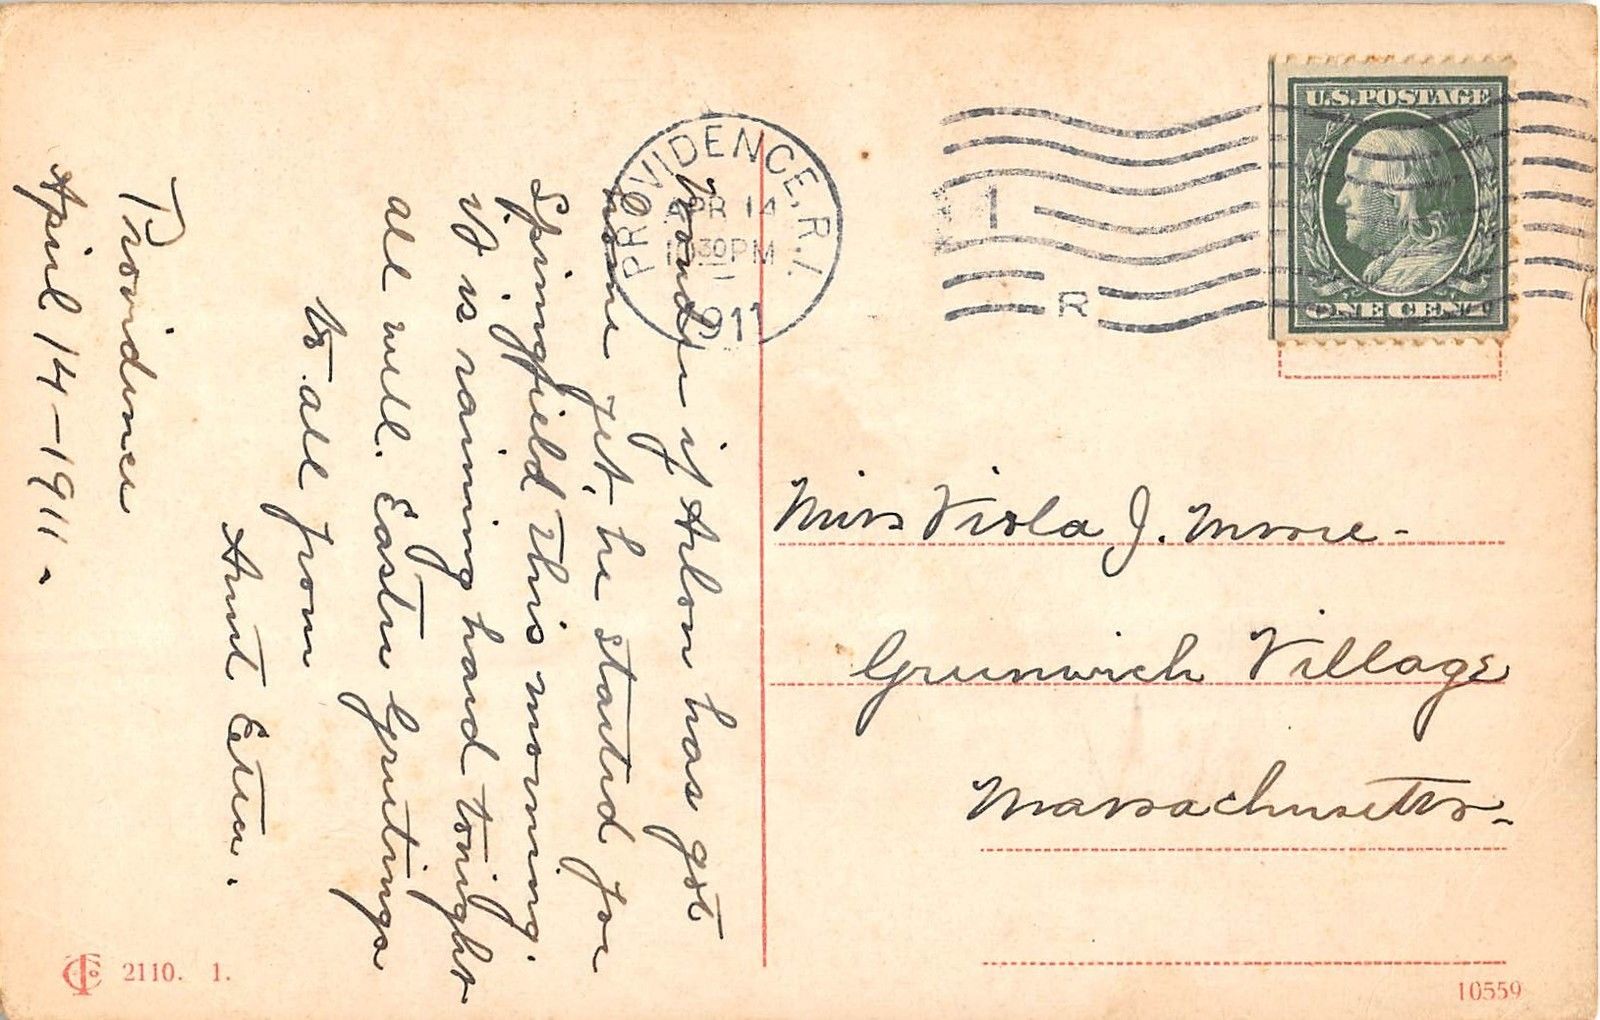 Wonder if Arlon has got
home yet, he started for
Springfield this morning.
it is raining hard tonight
all well. Easter Greetings
to all from
Aunt Etta.
Providence
April 14-1911.
PROVIDENCE, R.I.
APR 14
30 PM
1911
1
R
U.S. POSTAGE
ONE CENT
Miss Viola J. Moore-
Greenwich Village
Massachusetts-
2110. 1.
10559